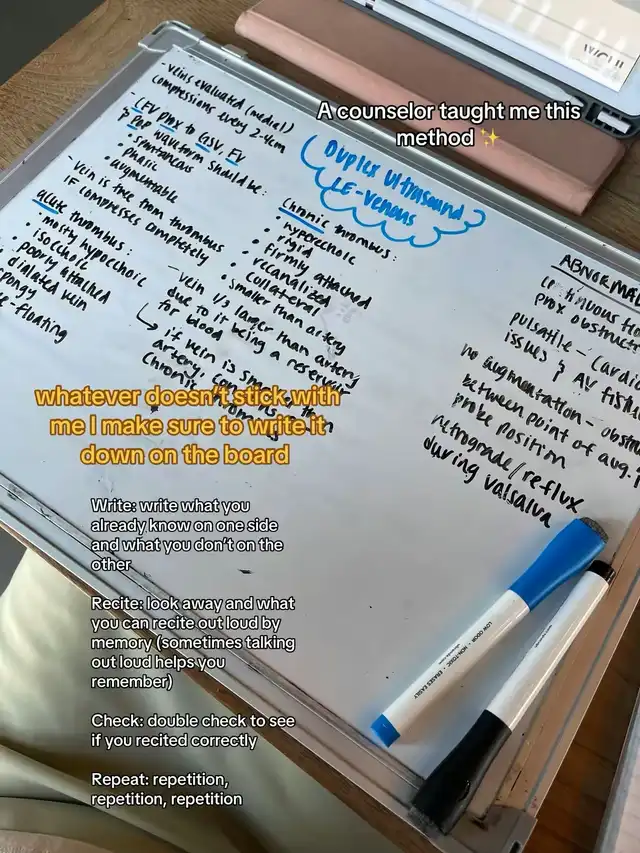 A counselor taught me this
method ✨
- veins evaluated (medial)
compressions every 2-4cm
- CFV Phx to GSV, FV
& Pop waveform should be:
• spontaneous
• phasic
• augmentable
- Vein is free from thrombus
if compresses completely
acute thrombus:
• mostly hypoechoic
• isoechoic
• poorly attached
• dialated vein
spongy
floating
Duplex Ultrasound
LE-Venous
Chronic thrombus:
• hyperechoic
• rigid
• firmly attached
• recanalized
• collateral
• smaller than artery
- vein 1/3 larger than artery
due to it being a reservoir
for blood
↳ if vein is smaller than
artery,
chronic
ABNORMA
continuous
prox obstruct
pulsatile - Cardi
issues & AV fistu
no augmentation - obstru
between point of aug.
probe position
retrograde/reflux
during valsalva
whatever doesn't stick with
me I make sure to write it
down on the board
Write: write what you
already know on one side
and what you don't on the
other
Recite: look away and what
you can recite out loud by
memory (sometimes talking
out loud helps you
remember)
Check: double check to see
if you recited correctly
Repeat: repetition,
repetition, repetition
LOW ODOR • NON-TOXIC • ERASES EASILY